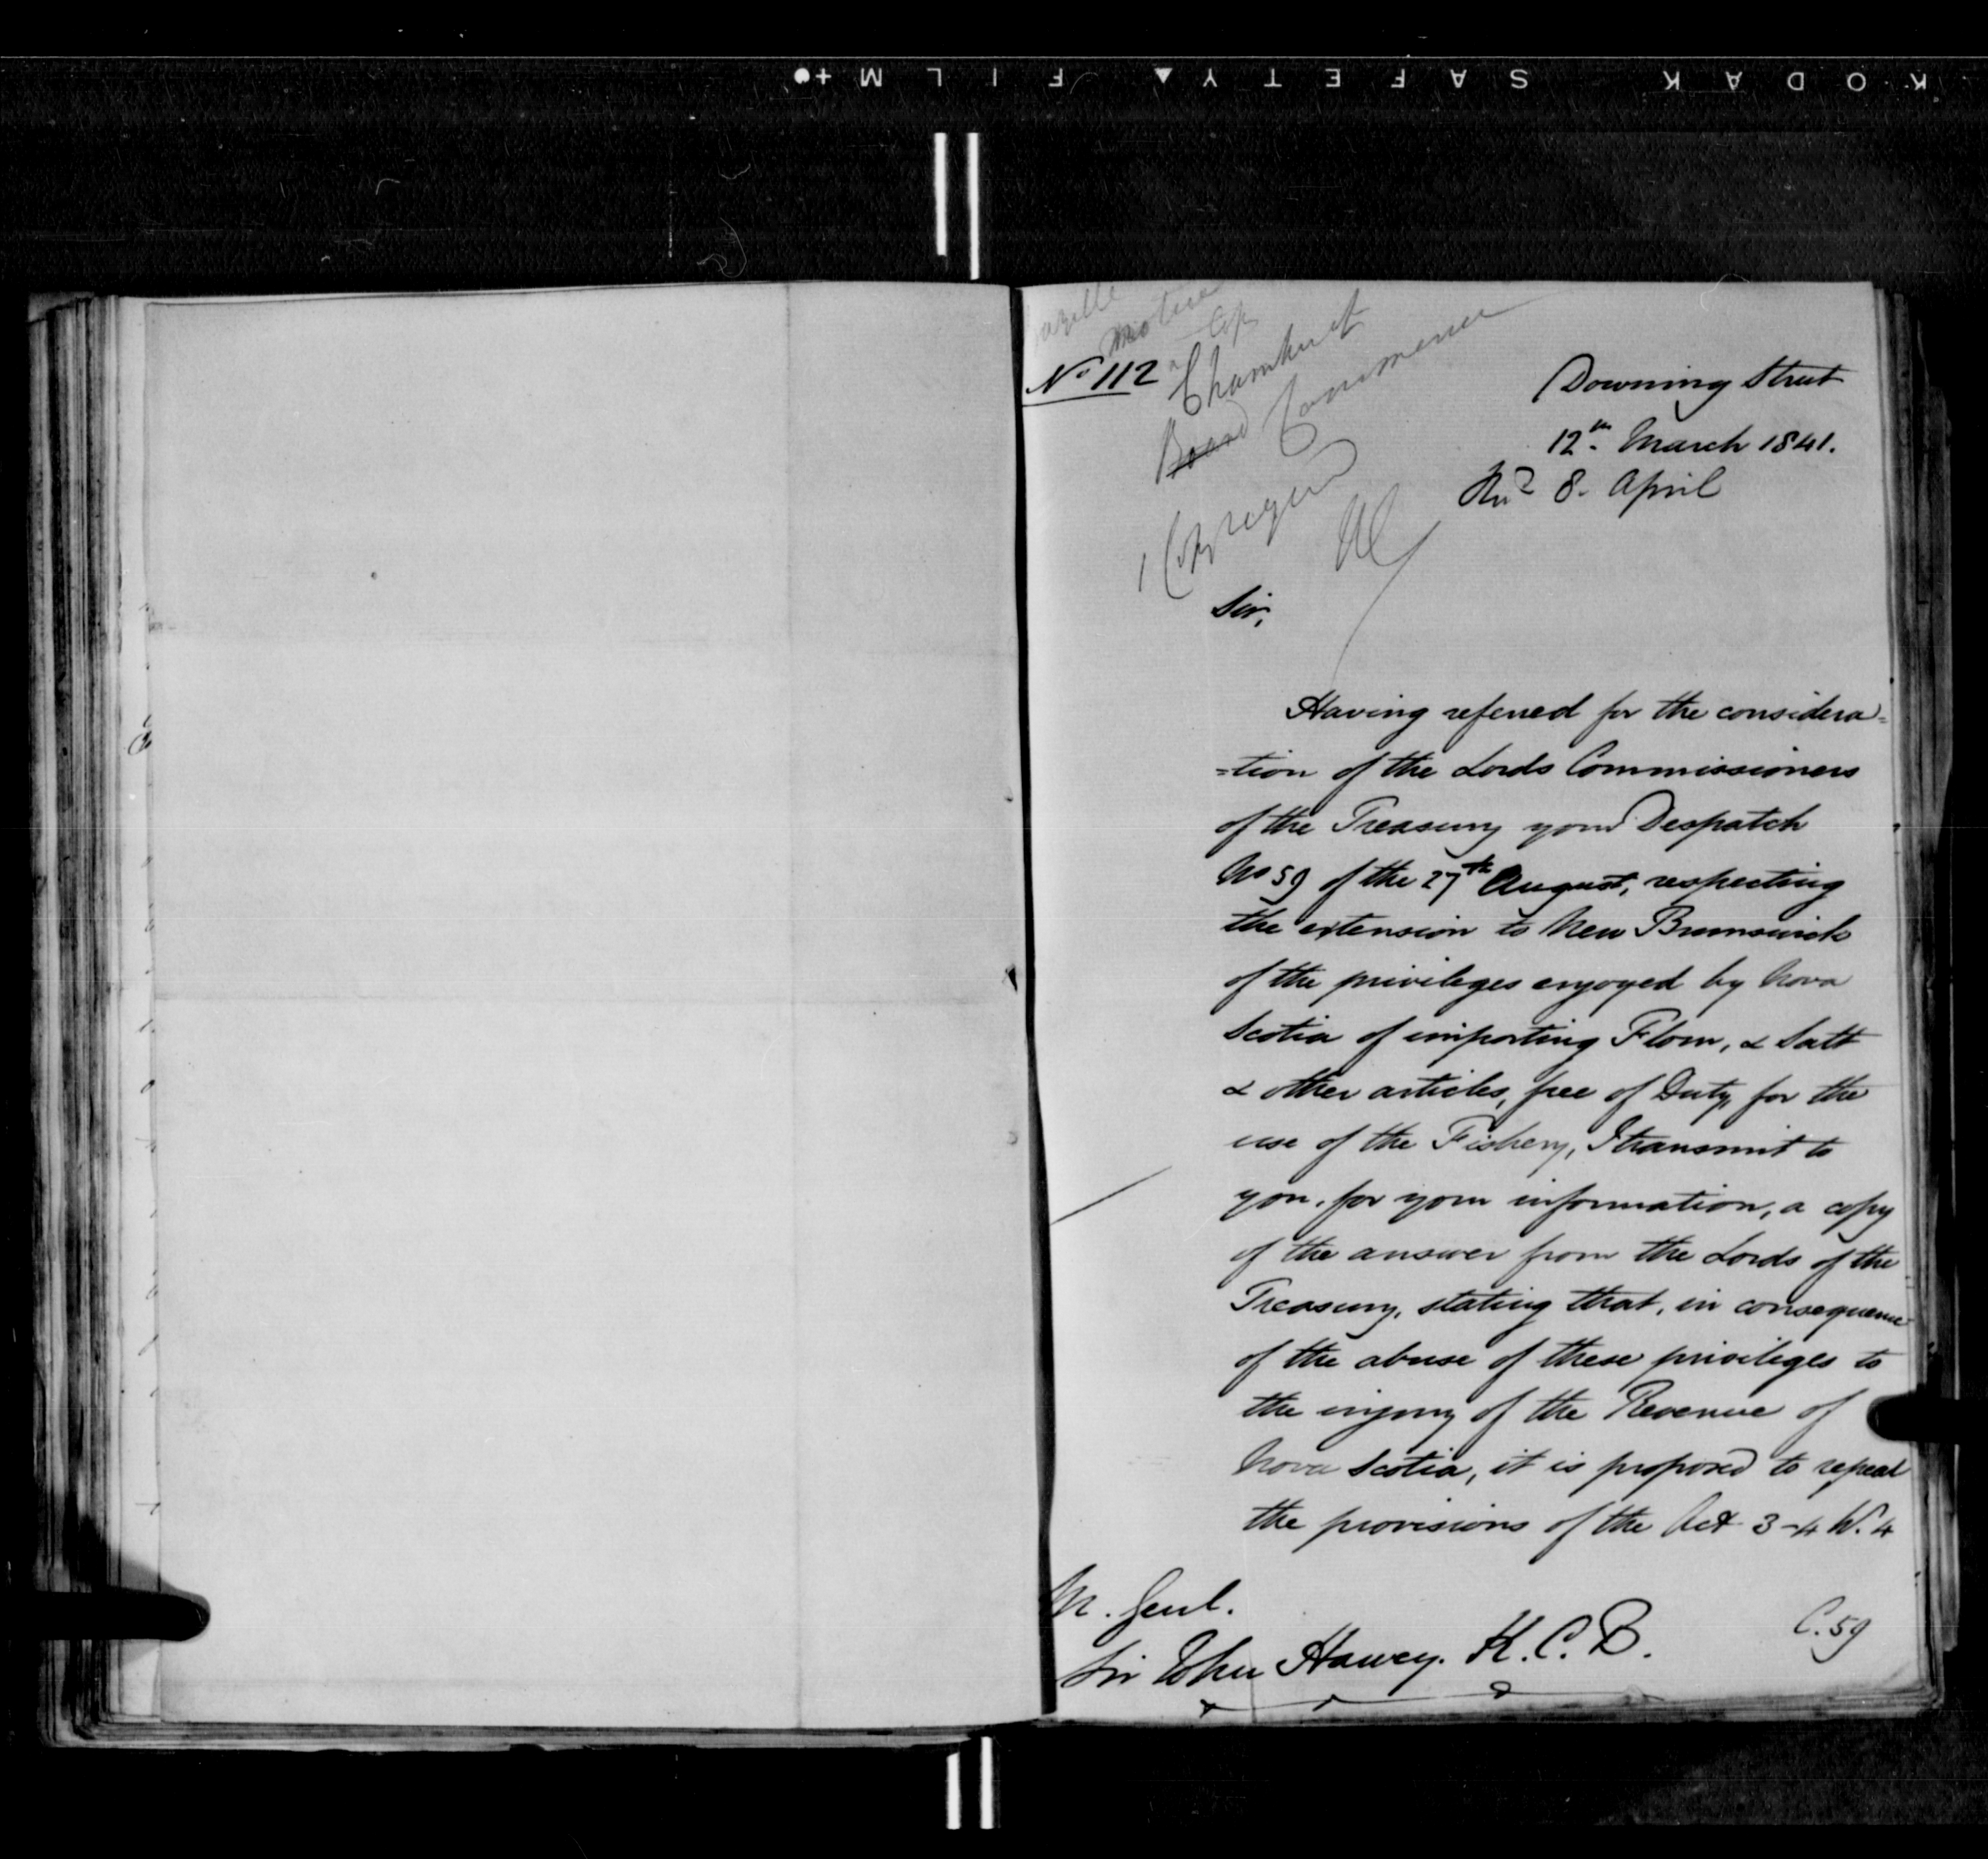 KODAK SAFETY FILM
No 112
Chamber of
Board Commerce
1 Copy
Downing Street
12th March 1841.
Recd 8. April
Sir,
Having referred for the considera=
=tion of the Lords Commissioners
of the Treasury your Despatch
No 59 of the 27th August, respecting
the extension to New Brunswick
of the privileges enjoyed by Nova
Scotia of importing Flour, & Salt
& other articles, free of Duty, for the
use of the Fishery, I transmit to
you, for your information, a copy
of the answer from the Lords of the
Treasury, stating that, in consequence
of the abuse of these privileges to
the injury of the Revenue of
Nova Scotia, it is proposed to repeal
the provisions of the Act 3-4 W. 4
C. 59
M. Genl.
Sir John Harvey. K.C.B.